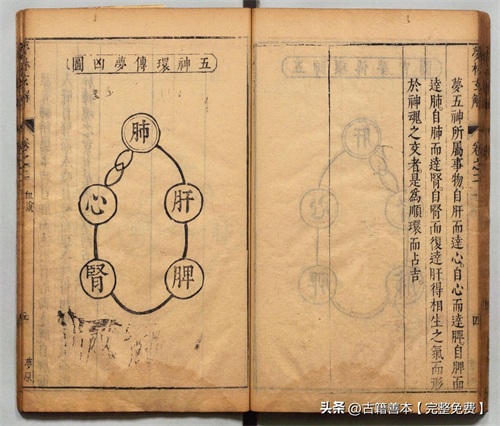 夢林玄解
卷之二
四
夢五神所屬事物自肝而達心自心而達脾自脾而
達肺自肺而達腎自腎而復達肝得相生之氣而形
於神魂之交者是為順環而占吉
五神環傳夢凶圖
肺
心
肝
腎
脾
卷之二
夢原
头条 @古籍善本【完整免费】